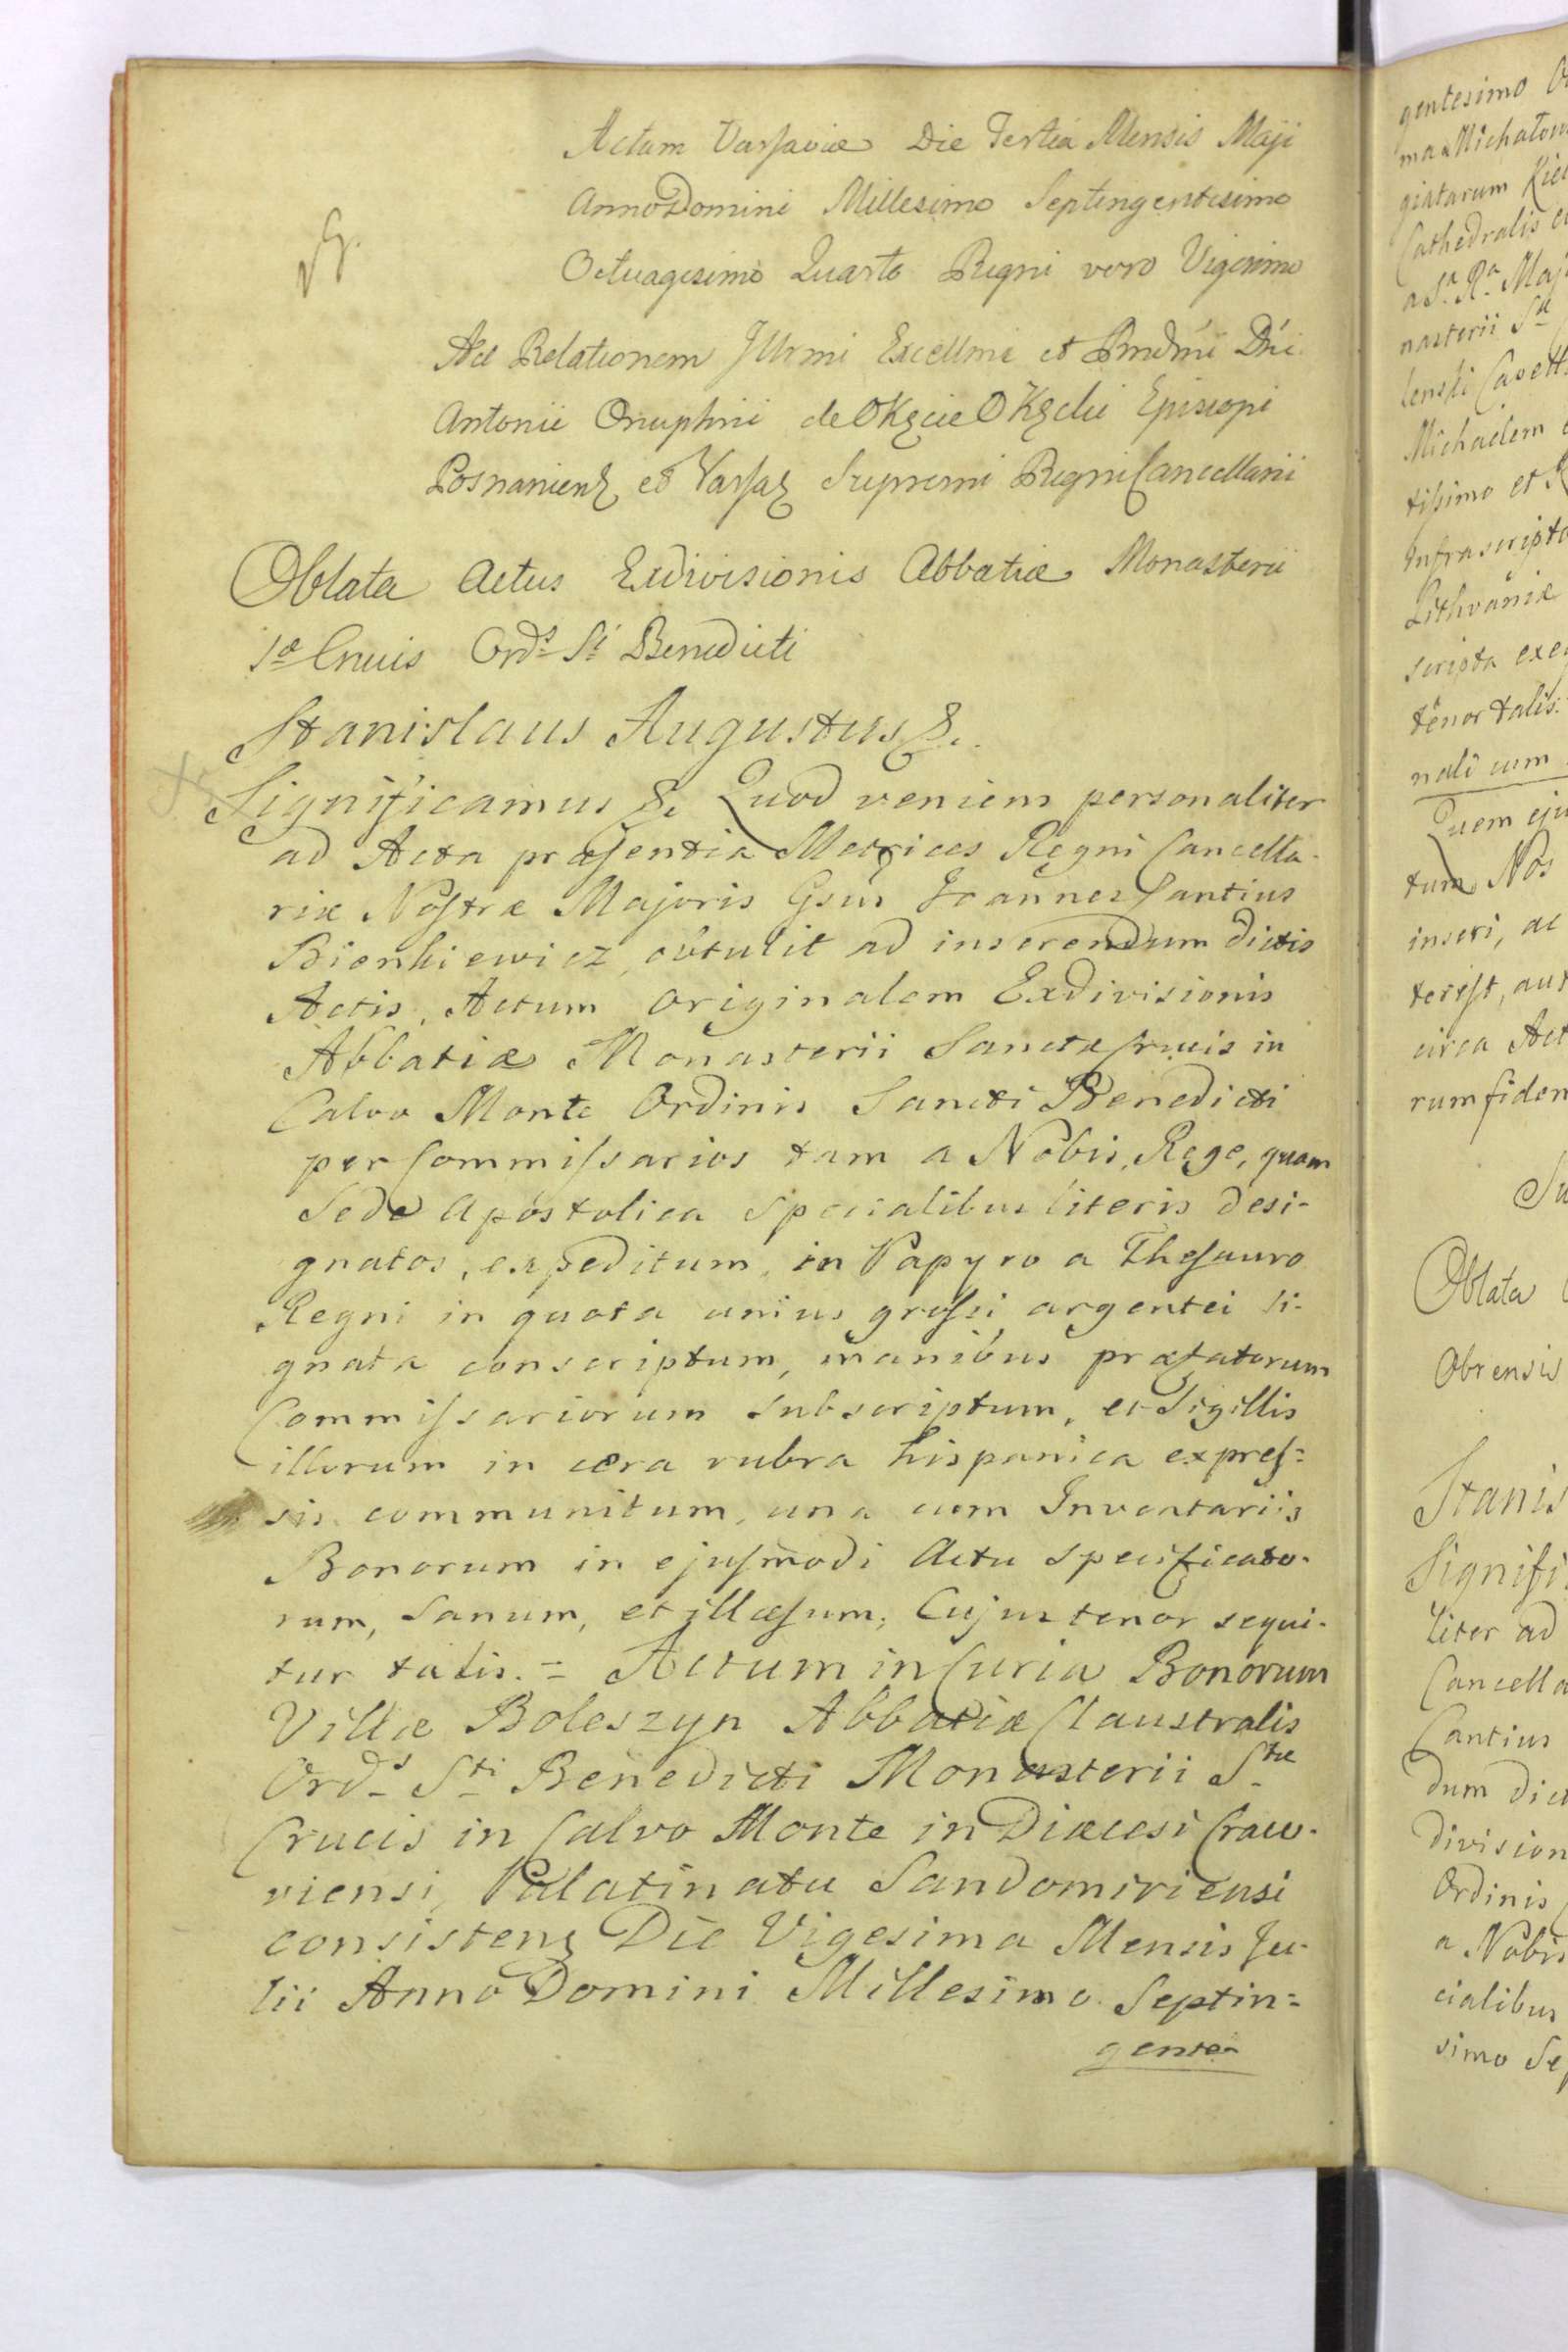 Actum Varsaviæ Die Tertia Mensis Maji
Anno Domini Millesimo Septingentesimo
Octuagesimo Quarto Regni vero Vigesimo
Ad Relationem Illrmi Excellmi et Rndmi Dni
Antonii Onuphrii de Okęcie Okęcki Episcopi
Posnanienȝ et Varsaȝ Supremi Regni Cancellarii
Oblata Actus Exdivisionis Abbatiæ Monasterii
Sæ Crucis Ords Sti Benedicti
Stanislaus Augustus &.
Significamus &. Quod veniens personaliter
ad Acta præsentia Metrices Regni Cancella-
riæ Nostræ Majoris Gsus Joannes Cantius
Bienkiewicz, obtulit ad inserendum dictis
Actis, Actum originalem Exdivisionis
Abbatiæ Monasterii Sanctæ Crucis in
Calvo Monte Ordinis Sancti Benedicti
per Commissarios tam a Nobis, Rege, quam
Sede Apostolica specialibus literis desi-
gnatos, expeditum, in Papyro a Thesauro
Regni in quota unius grossi argentei si-
gnata conscriptum, manibus præfatorum
Commissariorum subscriptum, et Sigillis
illorum in cæra rubra hispanica expres=
sis communitum, una cum Inventariis
Bonorum in ejusmodi Actu specificato-
rum, sanum, et illæsum, Cujus tenor sequi-
tur talis. = Actum in Curia Bonorum
Villæ Boleszyn Abbatiæ Claustralis
Ords Sti Benedicti Monasterii Stæ
Crucis in Calvo Monte in Diæcesi Craco-
viensi, Palatinatu Sandomiriensi
consistenȝ Die Vigesima Mensis Ju-
lii Anno Domini Millesimo Septin=
gente-
gentesimo
giatarum
Cathedralis
a S.a R.a Maj
nasterii
Michaelem
tissimo et
Infrascripto
Lithvaniæ
scripta
tenor talis.
nali cum
Quem
tum Nos
inseri, ac
terest, aut
circa Act
rum fidem
Su
Oblata
Obrensis
Stanis
Signifi
liter ad
Cancella
Cantius
dum dict
division
Ordinis
a Nobis
cialibus
simo Sep